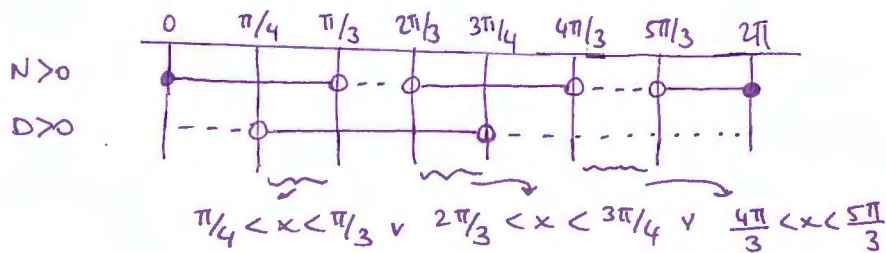 0 π/4 π/3 2π/3 3π/4 4π/3 5π/3 2π
N>0
D>0
π/4 < x < π/3 v 2π/3 < x < 3π/4 v 4π/3 < x < 5π/3